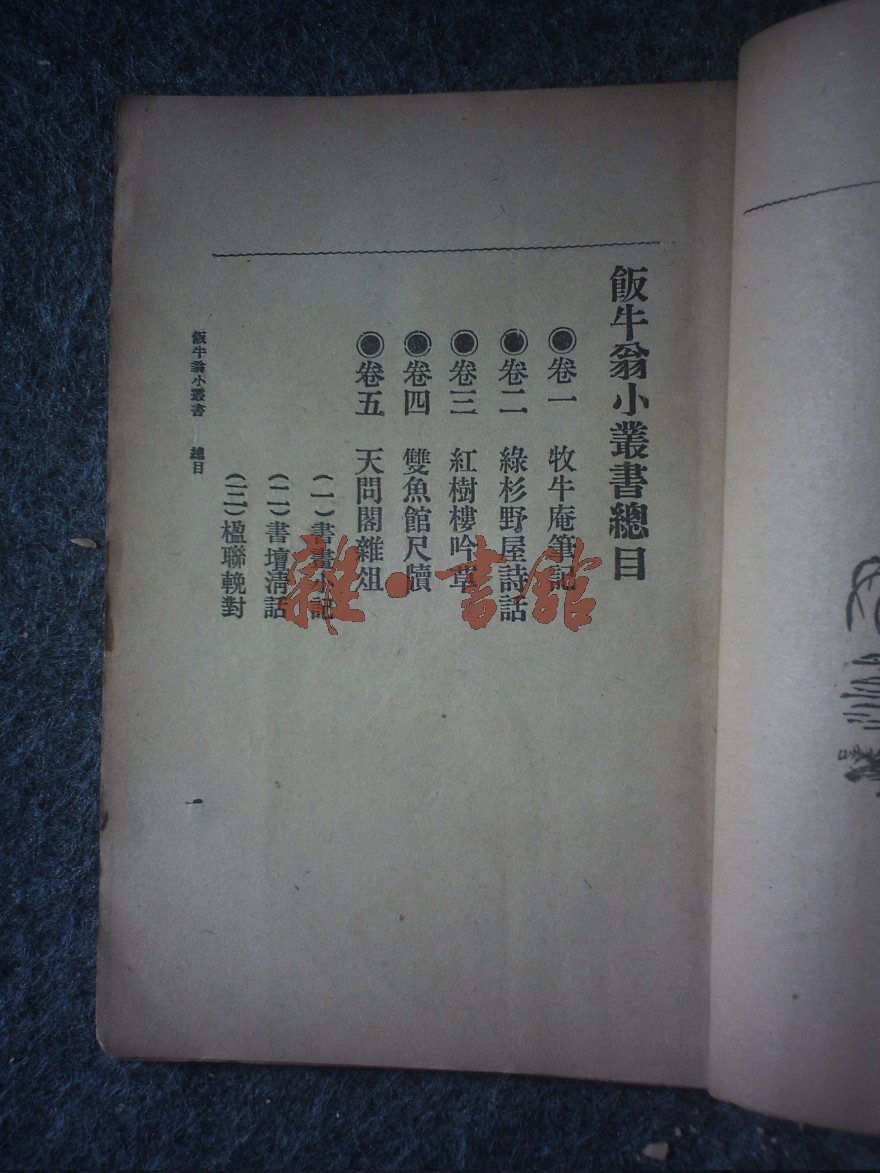 飯牛翁小叢書總目
◉卷一 牧牛庵筆記
◉卷二 綠杉野屋詩話
◉卷三 紅樹樓吟草
◉卷四 雙魚館尺牘
◉卷五 天問閣雜俎
(一)書畫小記
(二)書壇清話
(三)楹聯輓對
飯牛翁小叢書 總目
一
雜·書館